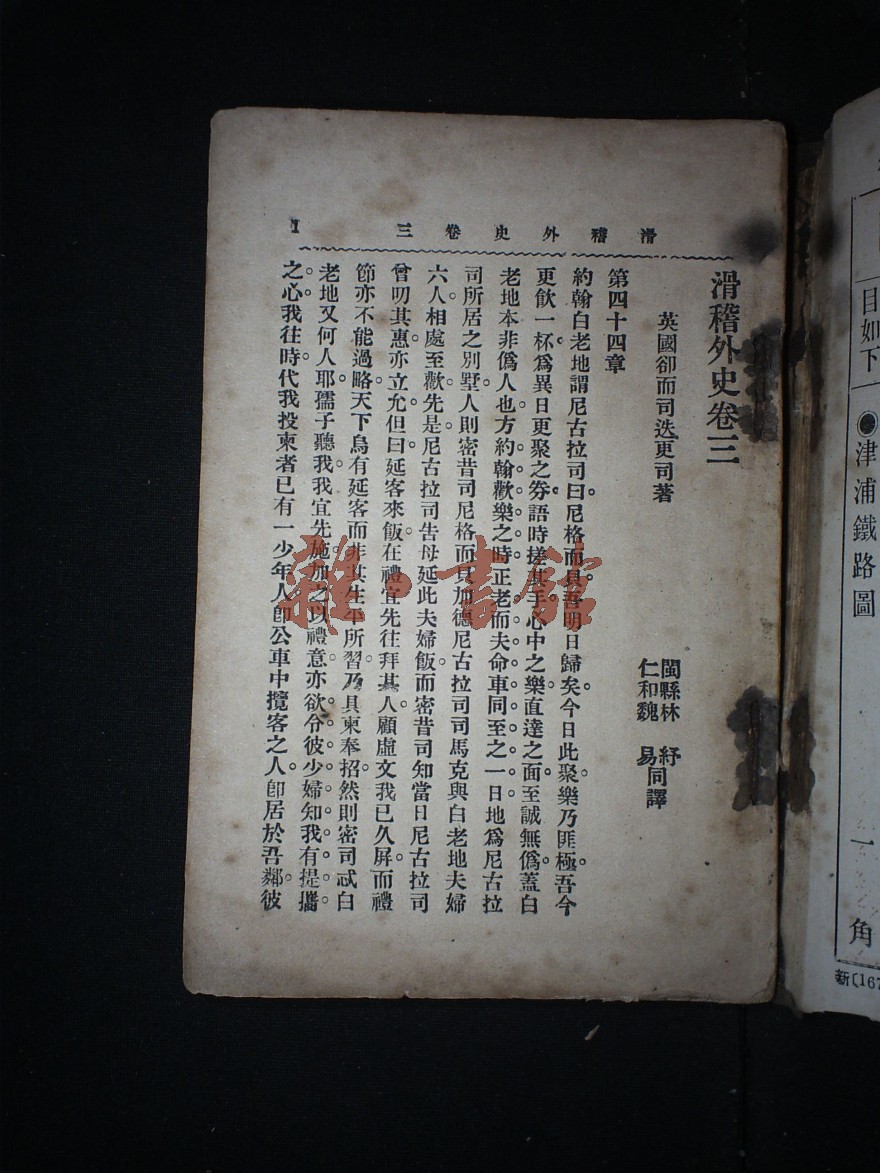 滑稽外史卷三
1
滑稽外史卷三
英國卻而司迭更司著
閩縣林紓
仁和魏易同譯
第四十四章
約翰白老地謂尼古拉司曰尼格而貝吾明日歸矣今日此聚樂乃匪極吾今
更飲一杯爲異日更聚之券語時搓其手心中之樂直達之面至誠無僞蓋白
老地本非僞人也方約翰歡樂之時正老而夫命車同至之一日地爲尼古拉
司所居之別墅人則密昔司尼格而貝加德尼古拉司司馬克與白老地夫婦
六人相處至歡先是尼古拉司告母延此夫婦飯而密昔司知當日尼古拉司
曾叨其惠亦立允但曰延客來飯在禮宜先往拜其人顧虛文我已久屏而禮
節亦不能過略天下烏有延客而非其生平所習乃具柬奉招然則密司忒白
老地又何人耶孺子聽我我宜先施加之以禮意亦欲令彼少婦知我有提攜
之心我往時代我投柬者已有一少年人卽公車中攬客之人卽居於吾鄰彼
雜·書館
目如下
●津浦鐵路圖
一角
新〔167